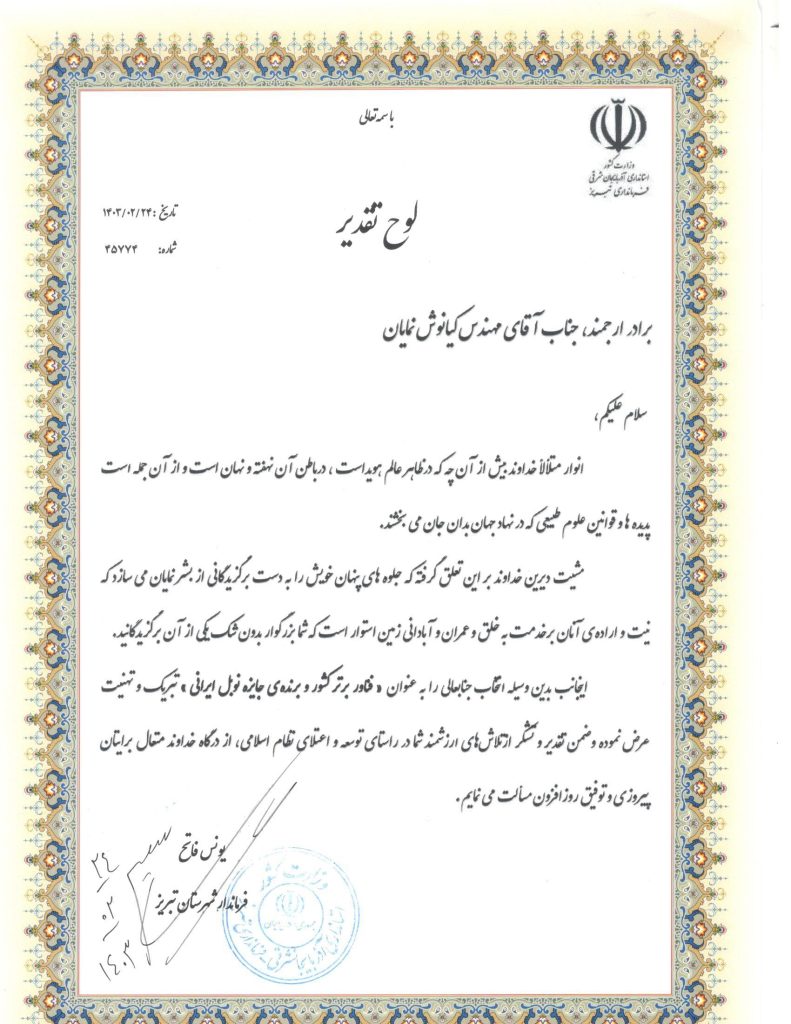 باسمه تعالی
وزارت کشور
استانداری آذربایجان شرقی
فرمانداری تبریز
تاریخ : ۱۴۰۳/۰۲/۲۴
لوح تقدیر
شماره: ۴۵۷۷۴
برادر ارجمند، جناب آقای مهندس کیانوش نمایان
سلام علیکم،
انوار متلألأ خداوند بیش از آن چه که در ظاهر عالم هویداست ، در باطن آن نهفته و نهان است و از آن جمله است
پدیده ها و قوانین علوم طبیعی که در نهاد جهان بدان جان می بخشند.
مشیت دیرین خداوند بر این تعلق گرفته که جلوه های پنهان خویش را به دست برگزیدگانی از بشر نمایان می سازد که
نیت و اراده ی آنان بر خدمت به خلق و عمران و آبادانی زمین استوار است که شما بزرگوار بدون شک یکی از آن برگزیدگانید.
اینجانب بدین وسیله انتخاب جنابعالی را به عنوان « فناور برتر کشور و برنده ی جایزه نوبل ایرانی » تبریک و تهنیت
عرض نموده و ضمن تقدیر و تشکر از تلاش های ارزشمند شما در راستای توسعه و اعتلای نظام اسلامی، از درگاه خداوند متعال برایتان
پیروزی و توفیق روزافزون مسألت می نمایم .
یونس فاتح
فرماندار شهرستان تبریز
وزارت کشور
استانداری آذربایجانشرقی - فرمانداری
۲۴
۰۳
۱۴۰۳